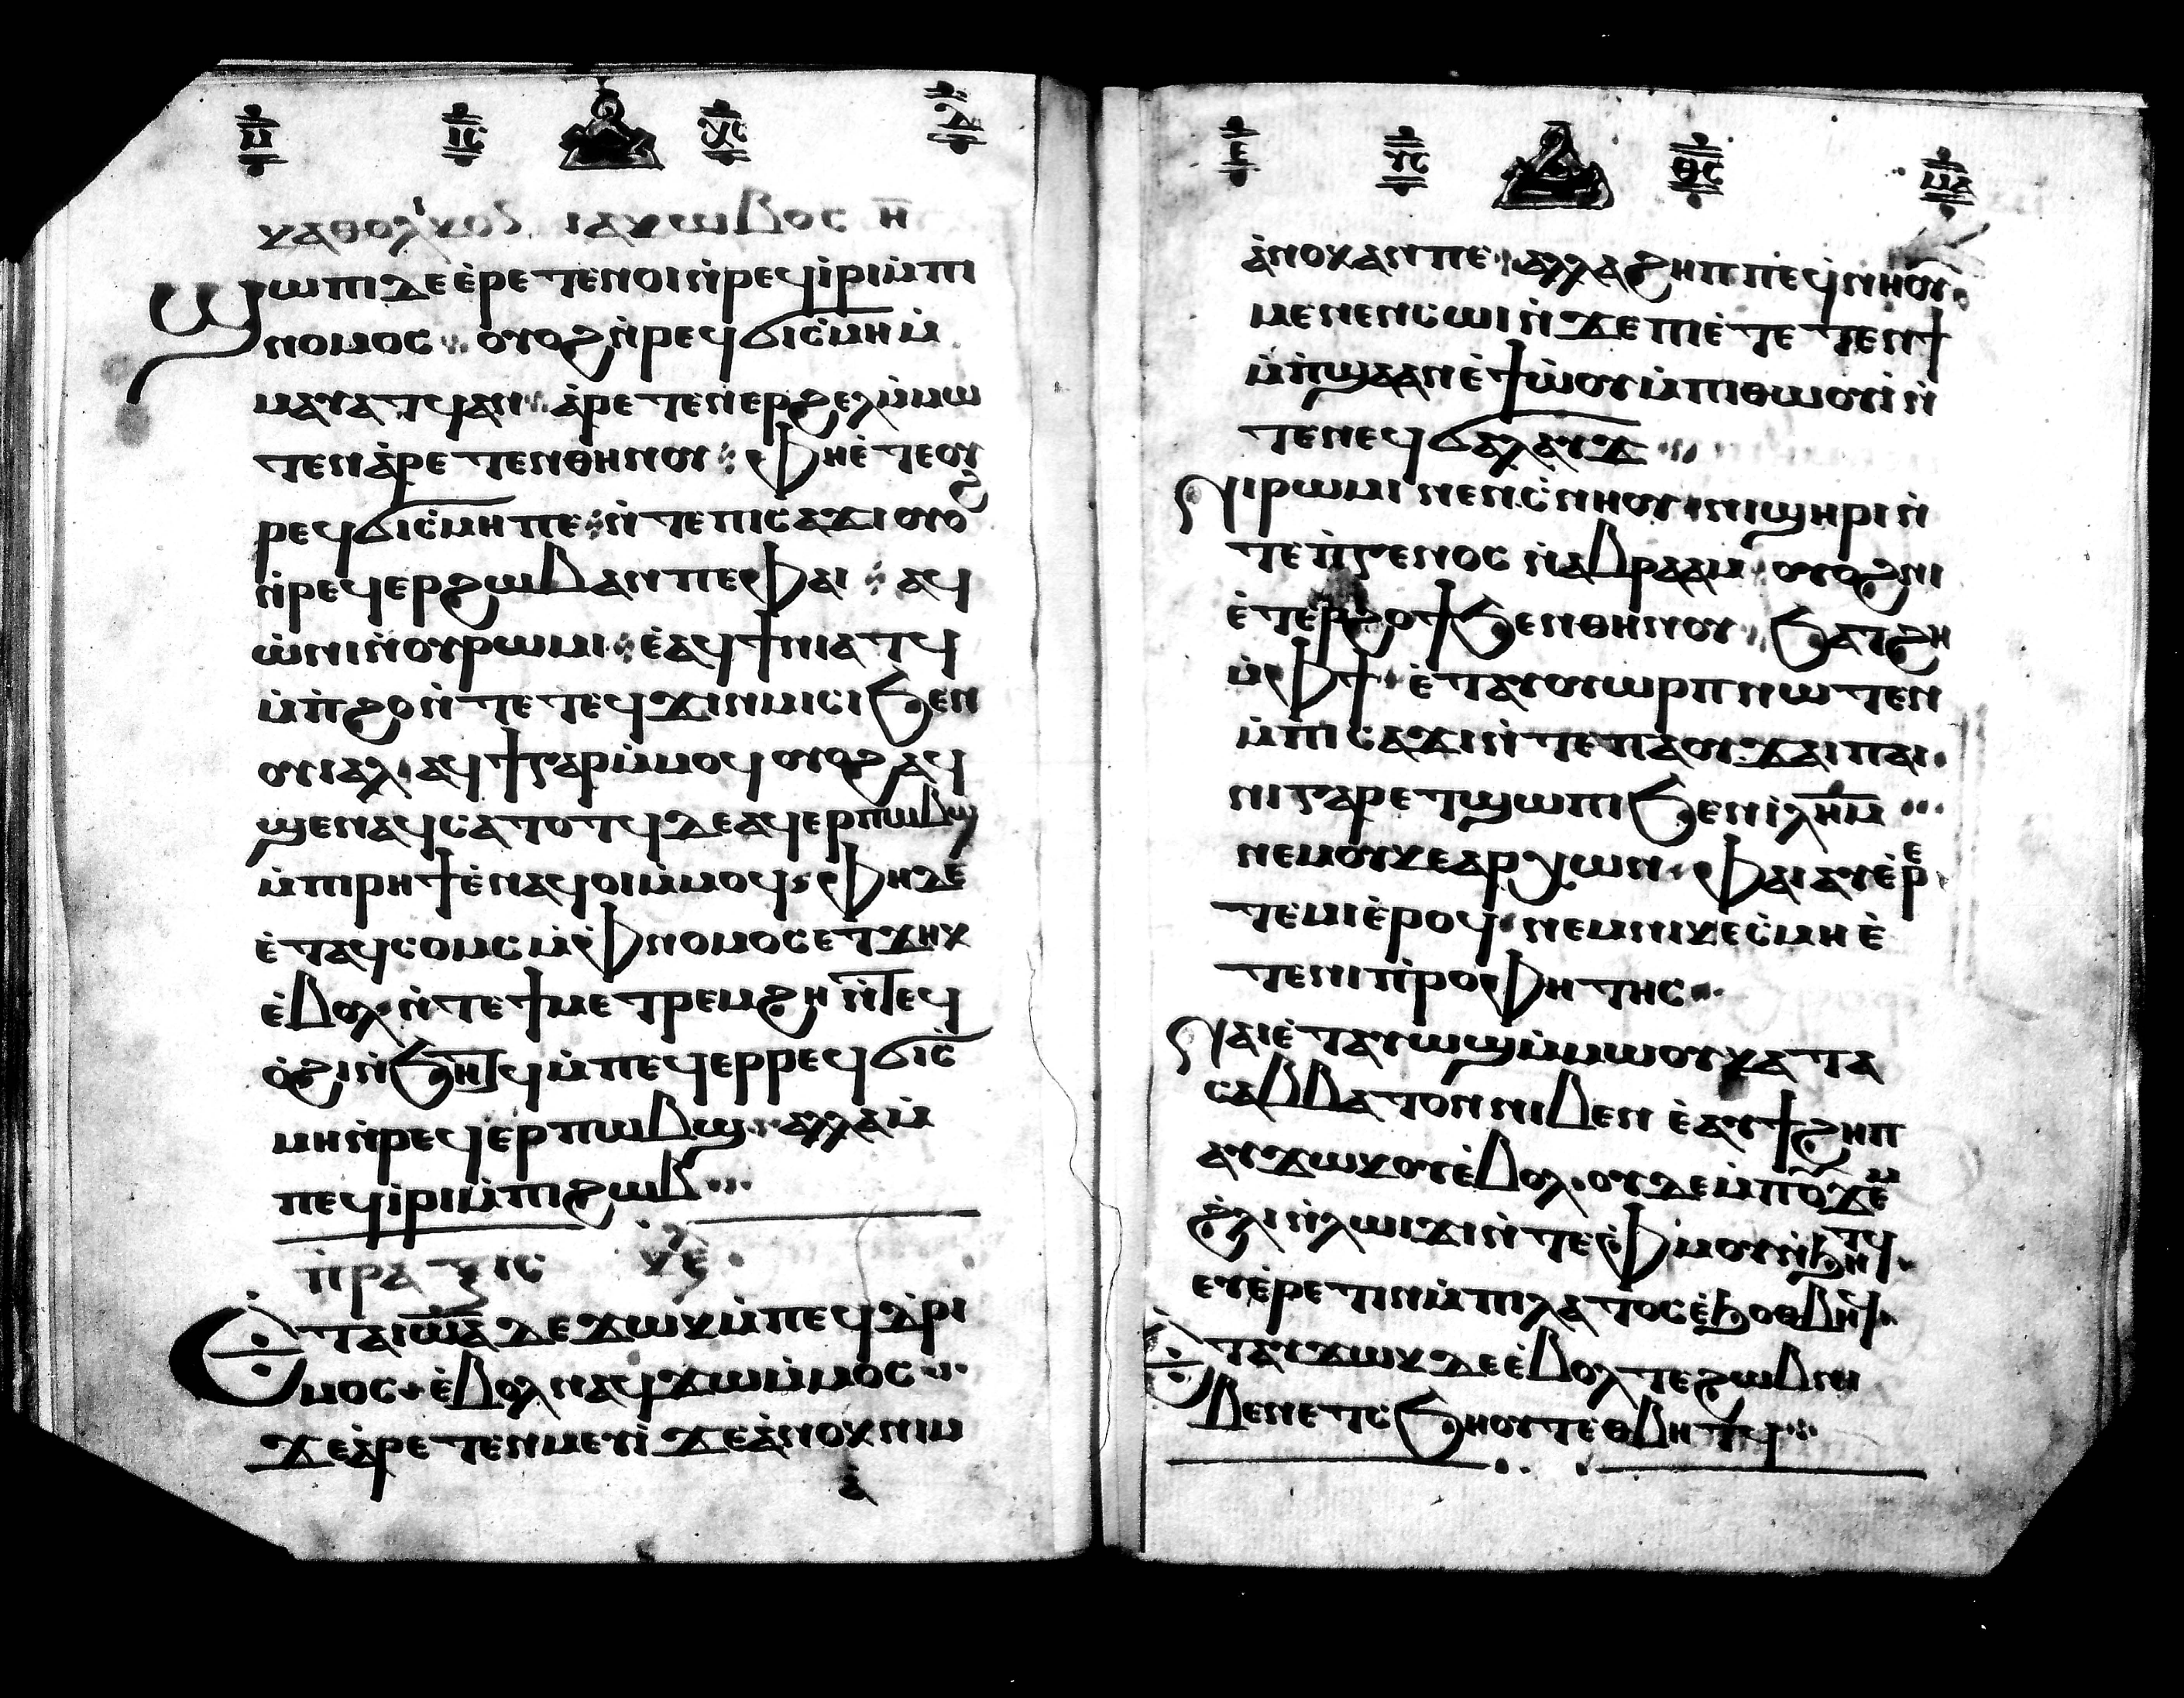 ⲙ ⲓⲥ ⲭⲥ ⲇ
ⲕⲁⲑⲟⲗⲓⲕⲟⲛ ⲓⲁⲕⲱⲃⲟⲥ ⲏ̅
ϣⲱⲡⲓ ⲇⲉ ⲉ̀ⲣⲉⲧⲉⲛⲟⲓ ⲛ̀ⲣⲉϥⲓ̀ⲣⲓ ⲙ̀ⲡⲓ
ⲛⲟⲙⲟⲥ ⲟⲩⲟϩ ⲛ̀ⲣⲉϥϭⲓⲥ̀ⲙⲏ ⲙ̀
ⲙⲁⲩⲁⲧϥ ⲁⲛ ⲁ̀ⲣⲉⲧⲉⲛⲉⲣϩⲉⲗ ⲙ̀ⲙⲱ
ⲧⲉⲛ ⲁ̀ⲣⲉⲧⲉⲛⲑⲏⲛⲟⲩ ⲫⲏⲉ̀ⲧⲉ ⲟⲩ
ⲣⲉϥϭⲓⲥ̀ⲙⲏ ⲡⲉ ⲛ̀ⲧⲉ ⲡⲓⲥⲁϫⲓ ⲟⲩⲟϩ
ⲛ̀ⲣⲉϥⲉⲣϩⲱⲃ ⲁⲛ ⲡⲉ ⲫⲁⲓ ⲁϥ
ⲱ̀ⲛⲓ ⲛ̀ⲟⲩⲣⲱⲙⲓ ⲉ̀ⲁϥϯⲛⲓⲁⲧϥ
ⲙ̀ⲡ̀ϩⲟ ⲛ̀ⲧⲉ ⲧⲉϥϫⲓⲛⲙⲓⲥⲓ ϧⲉⲛ
ⲟⲩⲓⲁⲗ ⲁϥϯ ⲅⲁⲣ ⲙ̀ⲙⲟϥ ⲟⲩⲟϩ ⲁϥ
ϣⲉⲛⲁϥ ⲥⲁⲧⲟⲧϥ ⲇⲉ ⲁϥⲉⲣⲡⲱⲃϣ
ⲙ̀ⲡⲓⲣⲏϯ ⲉ̀ⲛⲁϥⲟⲓ ⲙ̀ⲙⲟϥ ⲫⲏ ⲇⲉ
ⲉ̀ⲧⲁϥⲥⲟⲙⲥ ⲙ̀ⲫⲛⲟⲙⲟⲥ ⲉⲧϫⲏⲕ
ⲉ̀ⲃⲟⲗ ⲛ̀ⲧⲉ ϯⲙⲉⲧⲣⲉⲙϩⲏ ⲛ̀ⲧⲉϥ
ⲟ̀ϩⲓ ⲛ̀ϧⲏⲧϥ ⲙ̀ⲡⲉϥⲉⲣⲣⲉϥϭⲓⲥ̀
ⲙⲏ ⲛ̀ⲣⲉϥⲉⲣⲡⲱⲃϣ ⲁⲗⲗⲁ ⲙ̀
ⲡⲉϥⲓ̀ⲣⲓ ⲙ̀ⲡⲓϩⲱⲃ
ⲡ̀ⲣⲁⲝⲓⲥ ⲕⲉ
Ⲉⲧⲁ ⲓⲱⲁ ⲇⲉ ϫⲱⲕ ⲙ̀ⲡⲉϥⲇ̀ⲣⲓ
ⲙⲟⲥ ⲉ̀ⲃⲟⲗ ⲛⲁϥϫⲱ ⲙ̀ⲙⲟⲥ
ϫⲉ ⲁ̀ⲣⲉⲧⲉⲛⲙⲉⲩⲓ̀ ϫⲉ ⲁ̀ⲛⲟⲕ ⲛⲓⲙ
ⲁ̀
ⲉ ⲩⲥ ⲑⲥ ⲙⲁ
ⲁ̀ⲛⲟⲕ ⲁⲛ ⲡⲉ ⲁⲗⲗⲁ ϩⲏⲡⲡⲉ ϥ̀ⲛⲏⲟⲩ
ⲙⲉⲛⲉⲛⲥⲱⲓ ⲛ̀ϫⲉ ⲡⲓⲉ̀ⲧⲉ ⲧⲉⲛϯ
ⲙ̀ⲡ̀ϣⲁ ⲁⲛ ⲉ̀ϯⲱ̀ⲟⲩ ⲙ̀ⲡⲓⲑⲱⲟⲩⲓ̀ ⲛ̀
ⲧⲉ ⲛⲉϥϭⲁⲗⲁⲩϫ
Ⲛⲓⲣⲱⲙⲓ ⲛⲉⲛⲥ̀ⲛⲏⲟⲩ ⲛⲓϣⲏⲣⲓ ⲛ̀
ⲧⲉ ⲡ̀ⲅⲉⲛⲟⲥ ⲛ̀ⲁⲃⲣⲁⲁⲙ ⲟⲩⲟϩ ⲛⲓ
ⲉ̀ⲧⲉⲣϩⲟϯ ϧⲉⲛ ⲑⲏⲛⲟⲩ ϧⲁⲧϩⲏ
ⲙ̀ⲫϯ ⲉ̀ⲧⲁⲩⲟⲩⲱⲣⲡ ⲛⲱⲧⲉⲛ
ⲙ̀ⲡⲓⲥⲁϫⲓ ⲛ̀ⲧⲉ ⲡⲁⲟⲩϫⲁⲓ ⲡⲁⲓ
ⲛⲓ ⲅⲁⲣ ⲉⲧϣⲱⲡⲓ ϧⲉⲛ ⲓ̀ⲗⲏⲙ
ⲛⲉⲙ ⲟⲩⲕⲉⲁⲣⲭⲱⲛ ⲫⲁⲓ ⲁⲩⲉ̀ⲣⲉ
ⲧⲉⲙⲓ ⲉ̀ⲣⲟϥ ⲛⲉⲙ ⲛⲓⲕⲉⲥ̀ⲙⲏ ⲉ̀
ⲧⲉ ⲛⲓⲡ̀ⲣⲟⲫⲏⲧⲏⲥ
Ⲛⲁⲓ ⲉ̀ⲧⲁⲩⲱϣ ⲙ̀ⲙⲱⲟⲩ ⲕⲁⲧⲁ
ⲥⲁⲃⲃⲁⲧⲟⲛ ⲛⲓⲃⲉⲛ ⲉ̀ⲁⲩϯϩⲏⲡ
ⲁⲩϫⲱⲕⲟⲩ ⲉ̀ⲃⲟⲗ ⲟⲩⲇⲉ ⲙ̀ⲡⲟⲩϫⲉⲙ
ϩ̀ⲗⲓ ⲛ̀ⲗⲱⲓϫⲓ ⲛ̀ⲧⲉ ⲫ̀ⲙⲟⲩ ⲛ̀ϧⲏⲧϥ
ⲉⲩⲉ̀ⲣⲉⲧⲓⲛ ⲙ̀ⲡⲓⲗⲁⲧⲟⲥ ⲉ̀ϧⲟⲑⲃⲏϥ
Ⲉⲧⲁⲩϫⲱⲕ ⲇⲉ ⲉ̀ⲃⲟⲗ ⲧⲉ ϩⲱⲃ ⲛⲓ
ⲃⲉⲛ ⲉⲧⲥ̀ϧⲏⲟⲩⲧ ⲉⲑⲃⲏⲧϥ